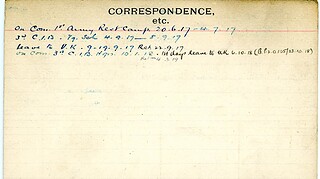 CORRESPONDENCE,
etc.
on Com. 1st Army Rest Camp 20.6.17 - 4.7.17
3rd C.I.B. 4.9.17 - 5.9.17
Leave to U.K. 9-19.9.17 Ret 22.9.17
on Com. 3rd C.I.B. Hqrs. 10.1.18 - 14 days leave to U.K. 6.10.18